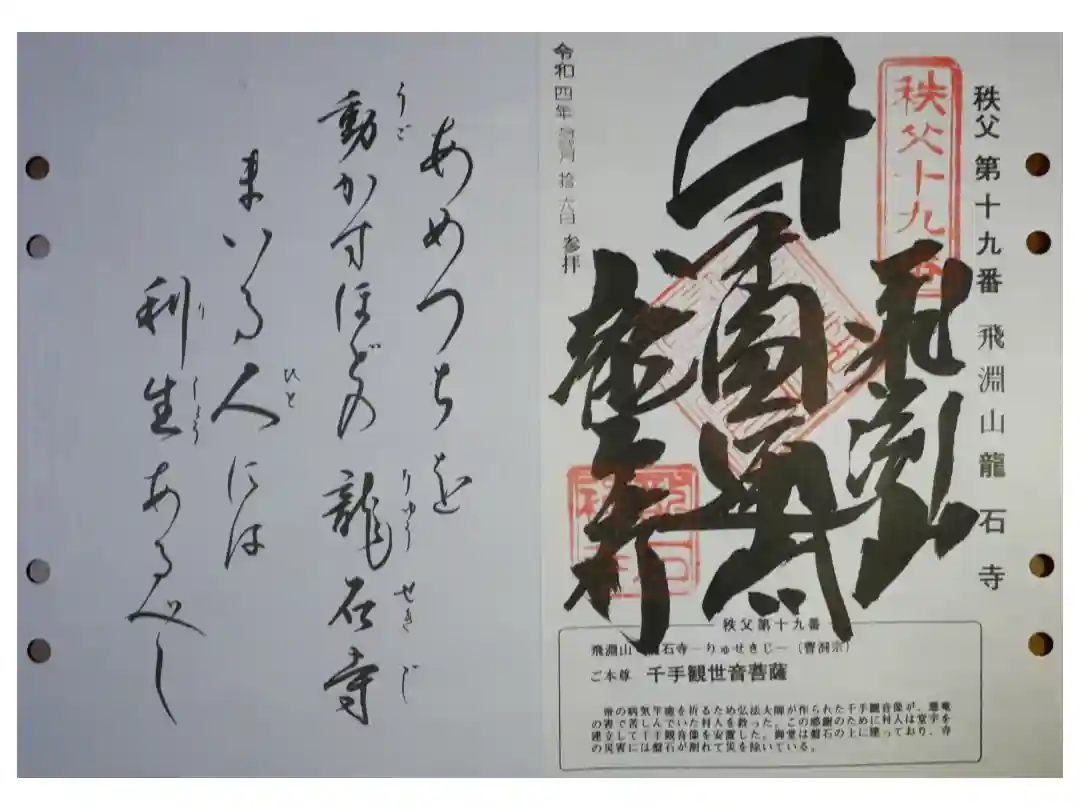 秩父 第十九番 飛淵山 龍石寺
秩父十九番
飛淵山
千手
圓通
龍石寺
令和四年 拾 六日 参拝
秩父第十九番
飛淵山 石寺―りゅせきじ―(曹洞宗)
ご本尊 千手観世音菩薩
帝の病気平癒を祈るため弘法大師が作られた千手観音像が、悪竜
の害で苦しんでいた村人を救った。この感謝のために村人は堂宇を
建立して千手観音像を安置した。御堂は盤石の上に建っており、寺
の災害には盤石が割れて災を除いている。
あめつちを
動かすほどの 龍石寺
うご りゅう せき じ
まいる人には
ひと
利生あるべし
り しょう